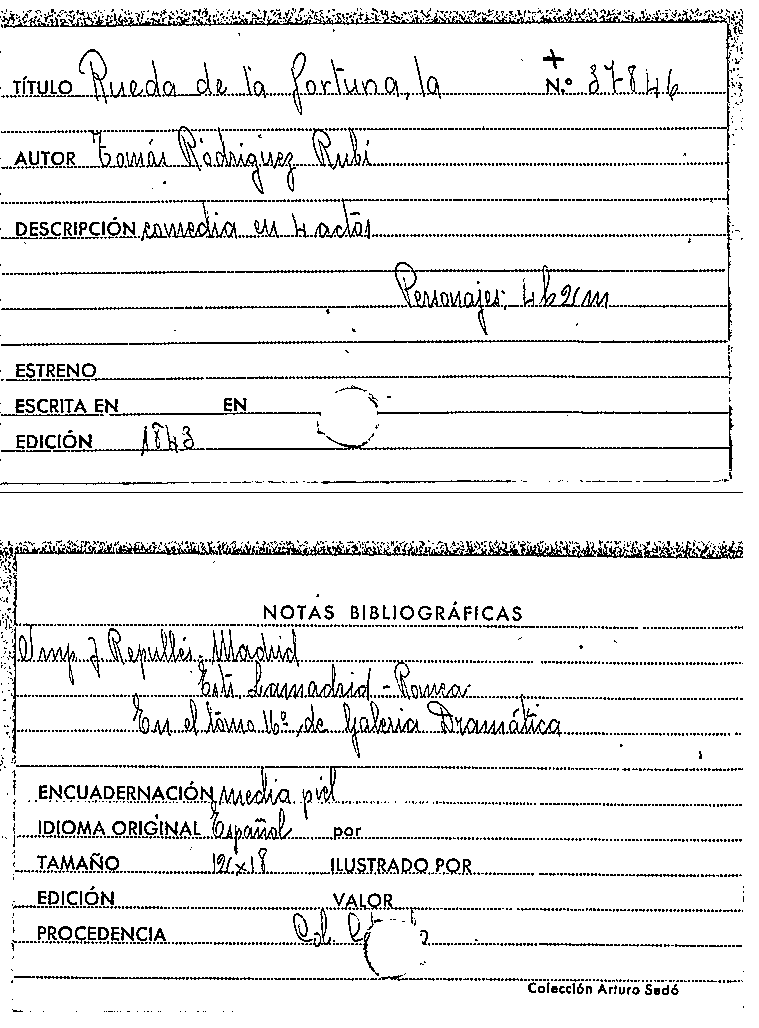 TÍTULO Rueda de la fortuna, la + N.º 37846
AUTOR Tomás Rodriguez Rubí
DESCRIPCIÓN comedia en 4 actos
Personajes: 4h 2m
ESTRENO
ESCRITA EN EN
EDICIÓN 1843
NOTAS BIBLIOGRÁFICAS
Imp. J. Repullés. Madrid
Estr. Lamadrid - Romea
En el tomo 16º de Galeria Dramática
ENCUADERNACIÓN media piel
IDIOMA ORIGINAL Español por
TAMAÑO 12x18 ILUSTRADO POR
EDICIÓN VALOR
PROCEDENCIA Col.
Colección Arturo Sedó